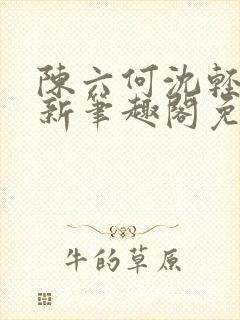 陳六何沈輕
新筆趣閣免
牛的草原